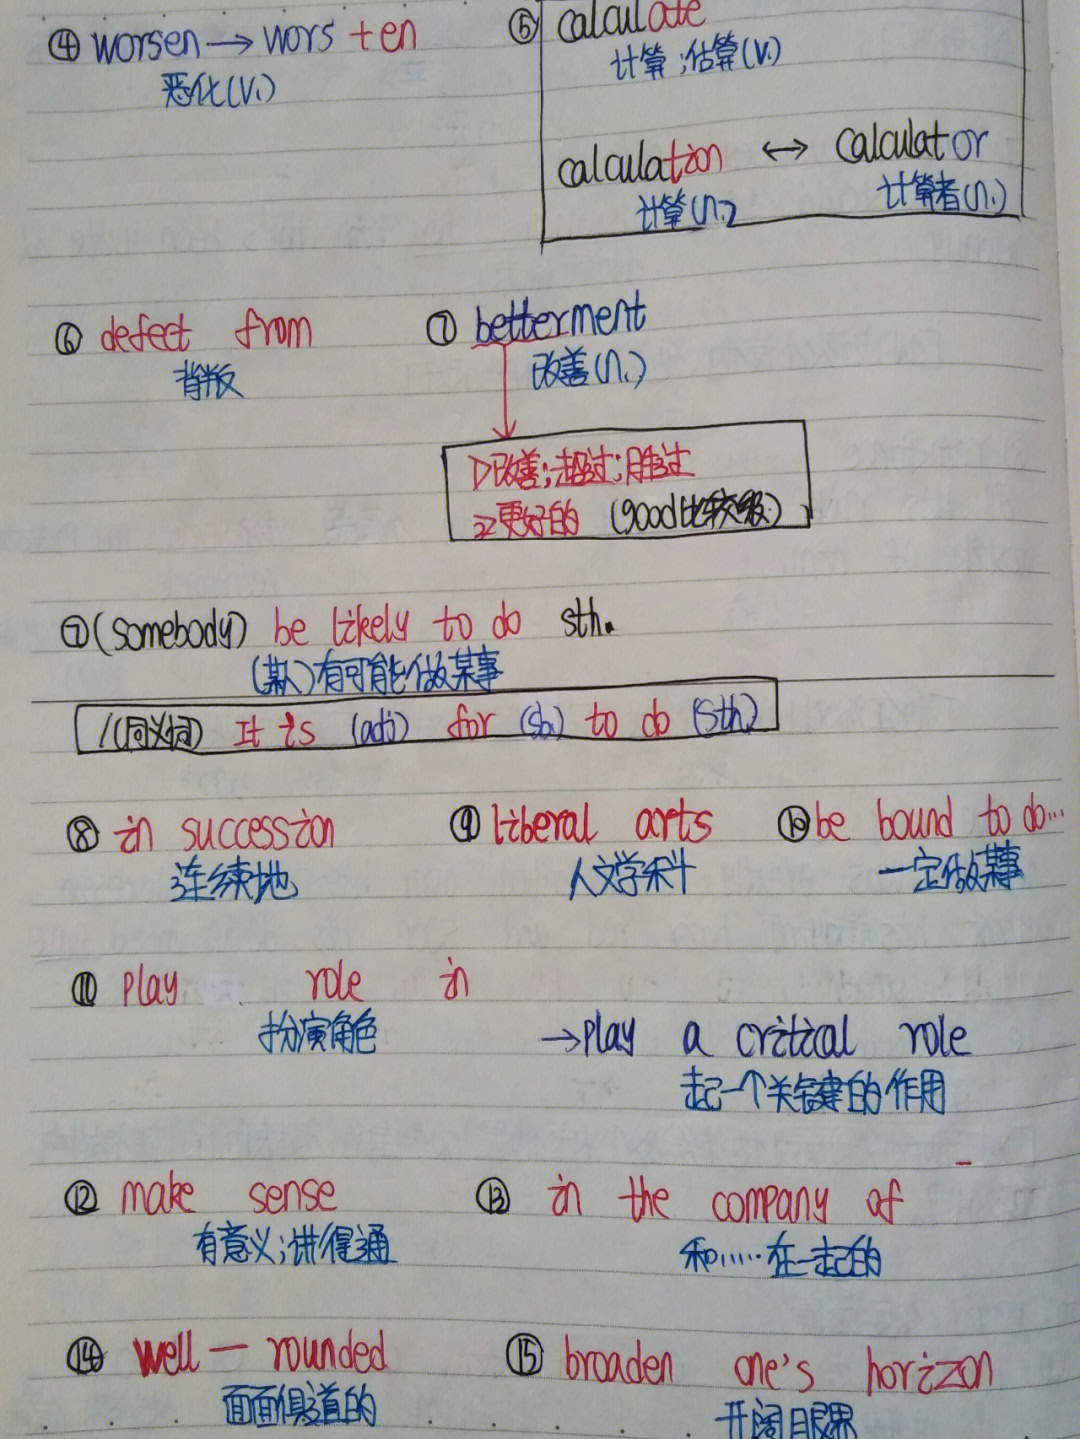 ④ worsen → wors + en
恶化(v.)
⑤ calculate
计算;估算(v.)
calculation ↔ calculator
计算(n.) 计算者(n.)
⑥ defect from
背叛
⑦ betterment
改善(n.)
1>改善;超过;胜过
2>更好的 (good比较级)
⑦(somebody) be likely to do sth.
(某人)有可能做某事
/(同义词) It is (adj) for (sb.) to do (sth.)
⑧ in succession
连续地
⑨ liberal arts
人文学科
⑩ be bound to do...
一定做某事
⑪ play role in
扮演角色
→play a critical role
起一个关键的作用
⑫ make sense
有意义;讲得通
⑬ in the company of
和……在一起的
⑭ well — rounded
面面俱道的
⑮ broaden one's horizon
开阔眼界